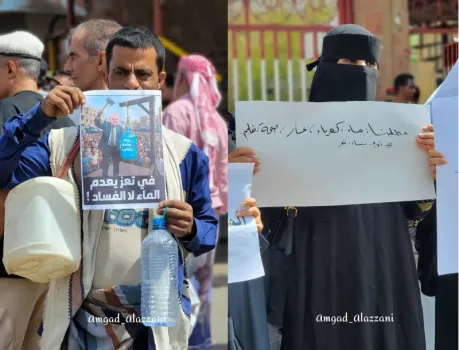 في تعز يعدم
الماء لا الفساد !
مطلبنا ماء، كهرباء، غاز، صحة، تعليم
Amgad_Alazzani
Amgad_Alazzani